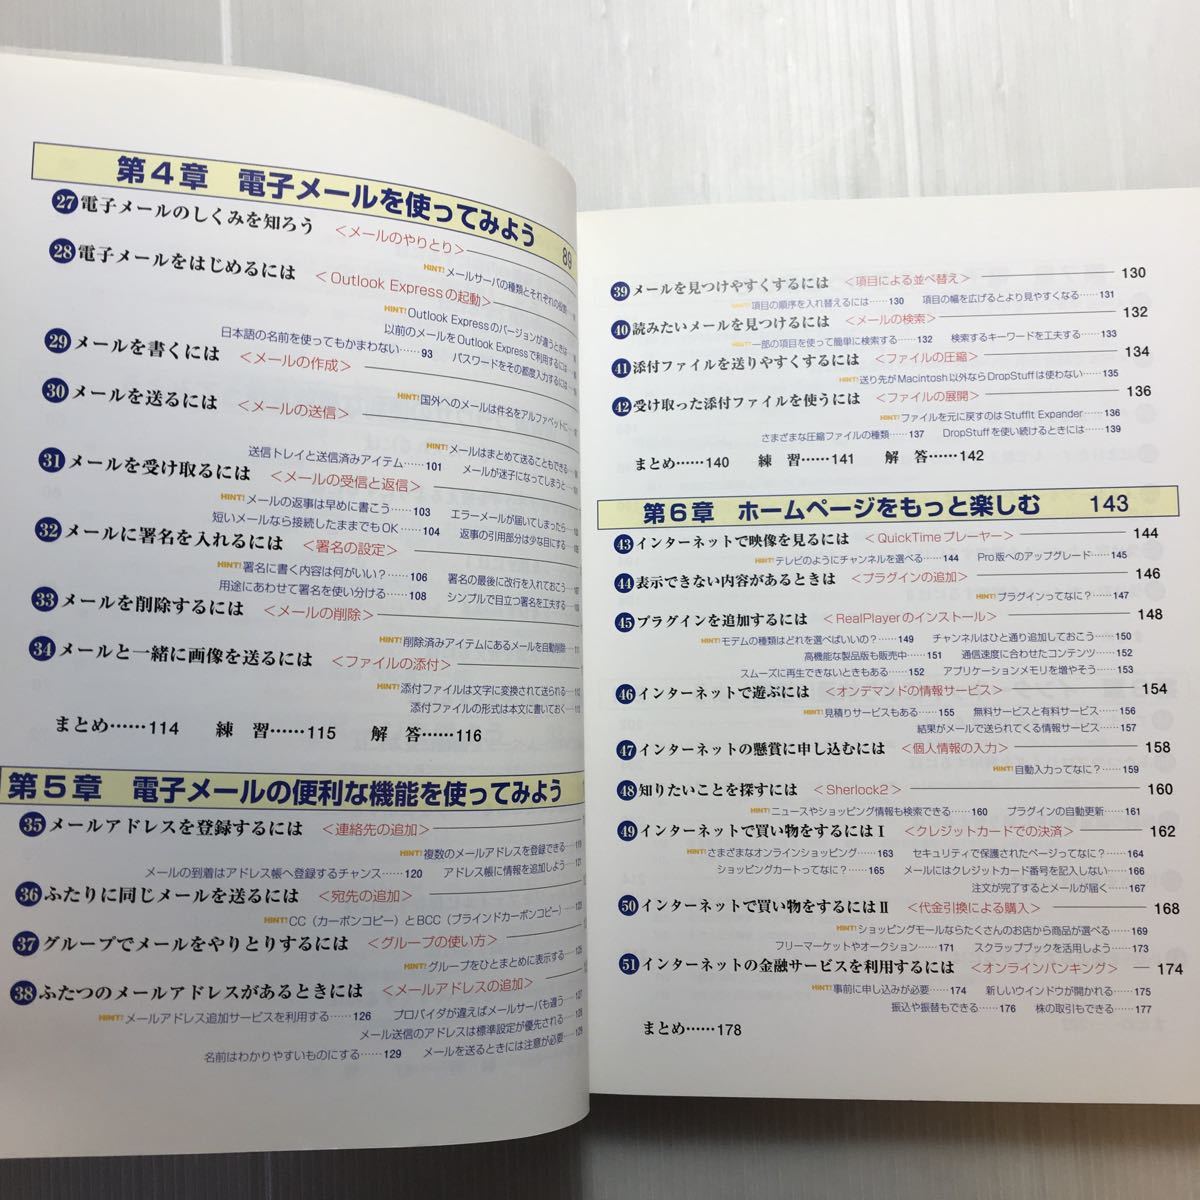 第4章 電子メールを使ってみよう 89
27 電子メールのしくみを知ろう <メールのやりとり>
HINT!メールサーバの種類とそれぞれの役割
28 電子メールをはじめるには <Outlook Expressの起動>
HINT!Outlook Expressのバージョンが違うときは
以前のメールをOutlook Expressで利用するには
日本語の名前を使ってもかまわない……93 パスワードをその都度入力するには
29 メールを書くには <メールの作成>
HINT!国外へのメールは件名をアルファベットに
30 メールを送るには <メールの送信>
HINT!メールはまとめて送ることもできる
送信トレイと送信済みアイテム……101 メールが迷子になってしまうと
31 メールを受け取るには <メールの受信と返信>
HINT!メールの返事は早めに書こう……103 エラーメールが届いてしまったら
短いメールなら接続したままでもOK……104 返事の引用部分は少な目にする
32 メールに署名を入れるには <署名の設定>
HINT!署名に書く内容は何がいい?……106 署名の最後に改行を入れておこう
用途にあわせて署名を使い分ける……108 シンプルで目立つ署名を工夫する
33 メールを削除するには <メールの削除>
HINT!削除済みアイテムにあるメールを自動削除…111
34 メールと一緒に画像を送るには <ファイルの添付>
HINT!添付ファイルは文字に変換されて送られる…112
添付ファイルの形式は本文に書いておく…113
まとめ……114 練 習……115 解 答……116
第5章 電子メールの便利な機能を使ってみよう
35 メールアドレスを登録するには <連絡先の追加>
HINT!複数のメールアドレスを登録できる…119
メールの到着はアドレス帳へ登録するチャンス……120 アドレス帳に情報を追加しよう…121
36 ふたりに同じメールを送るには <宛先の追加>
HINT!CC(カーボンコピー)とBCC(ブラインドカーボンコピー)…123
37 グループでメールをやりとりするには <グループの使い方>
HINT!グループをひとまとめに表示する…125
38 ふたつのメールアドレスがあるときには <メールアドレスの追加>
HINT!メールアドレス追加サービスを利用する……126 プロバイダが違えばメールサーバも違う…127
メール送信のアドレスは標準設定が優先される…128
名前はわかりやすいものにする……129 メールを送るときには注意が必要…129
39 メールを見つけやすくするには <項目による並べ替え> 130
HINT!項目の順序を入れ替えるには……130 項目の幅を広げるとより見やすくなる……131
40 読みたいメールを見つけるには <メールの検索> 132
HINT!一部の項目を使って簡単に検索する……132 検索するキーワードを工夫する……133
41 添付ファイルを送りやすくするには <ファイルの圧縮> 134
HINT!送り先がMacintosh以外ならDropStuffは使わない……135
42 受け取った添付ファイルを使うには <ファイルの展開> 136
HINT!ファイルを元に戻すのはStuffIt Expander……136
さまざまな圧縮ファイルの種類……137 DropStuffを使い続けるときには……139
まとめ……140 練 習……141 解 答……142
第6章 ホームページをもっと楽しむ 143
43 インターネットで映像を見るには <QuickTimeプレーヤー> 144
HINT!テレビのようにチャンネルを選べる……144 Pro版へのアップグレード……145
44 表示できない内容があるときは <プラグインの追加> 146
HINT!プラグインってなに?……147
45 プラグインを追加するには <RealPlayerのインストール> 148
HINT!モデムの種類はどれを選べばいいの?……149 チャンネルはひと通り追加しておこう……150
高機能な製品版も販売中……151 通信速度に合わせたコンテンツ……152
スムーズに再生できないときもある……152 アプリケーションメモリを増やそう……153
46 インターネットで遊ぶには <オンデマンドの情報サービス> 154
HINT!見積りサービスもある……155 無料サービスと有料サービス……156
結果がメールで送られてくる情報サービス……157
47 インターネットの懸賞に申し込むには <個人情報の入力> 158
HINT!自動入力ってなに?……159
48 知りたいことを探すには <Sherlock2> 160
HINT!ニュースやショッピング情報も検索できる……160 プラグインの自動更新……161
49 インターネットで買い物をするにはⅠ <クレジットカードでの決済> 162
HINT!さまざまなオンラインショッピング……163 セキュリティで保護されたページってなに?……164
ショッピングカートってなに?……165 メールにはクレジットカード番号を記入しない……166
注文が完了するとメールが届く……167
50 インターネットで買い物をするにはⅡ <代金引換による購入> 168
HINT!ショッピングモールならたくさんのお店から商品が選べる……169
フリーマーケットやオークション……171 スクラップブックを活用しよう……173
51 インターネットの金融サービスを利用するには <オンラインバンキング> 174
HINT!事前に申し込みが必要……174 新しいウインドウが開かれる……175
振込や振替もできる……176 株の取引もできる……177
まとめ……178